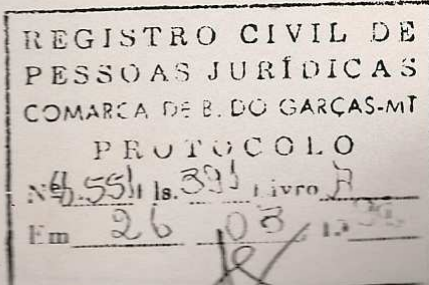 REGISTRO CIVIL DE
PESSOAS JURÍDICAS
COMARCA DE B. DO GARÇAS-MT
PROTOCOLO
Nº ls. 391 Livro A
Em 26 03